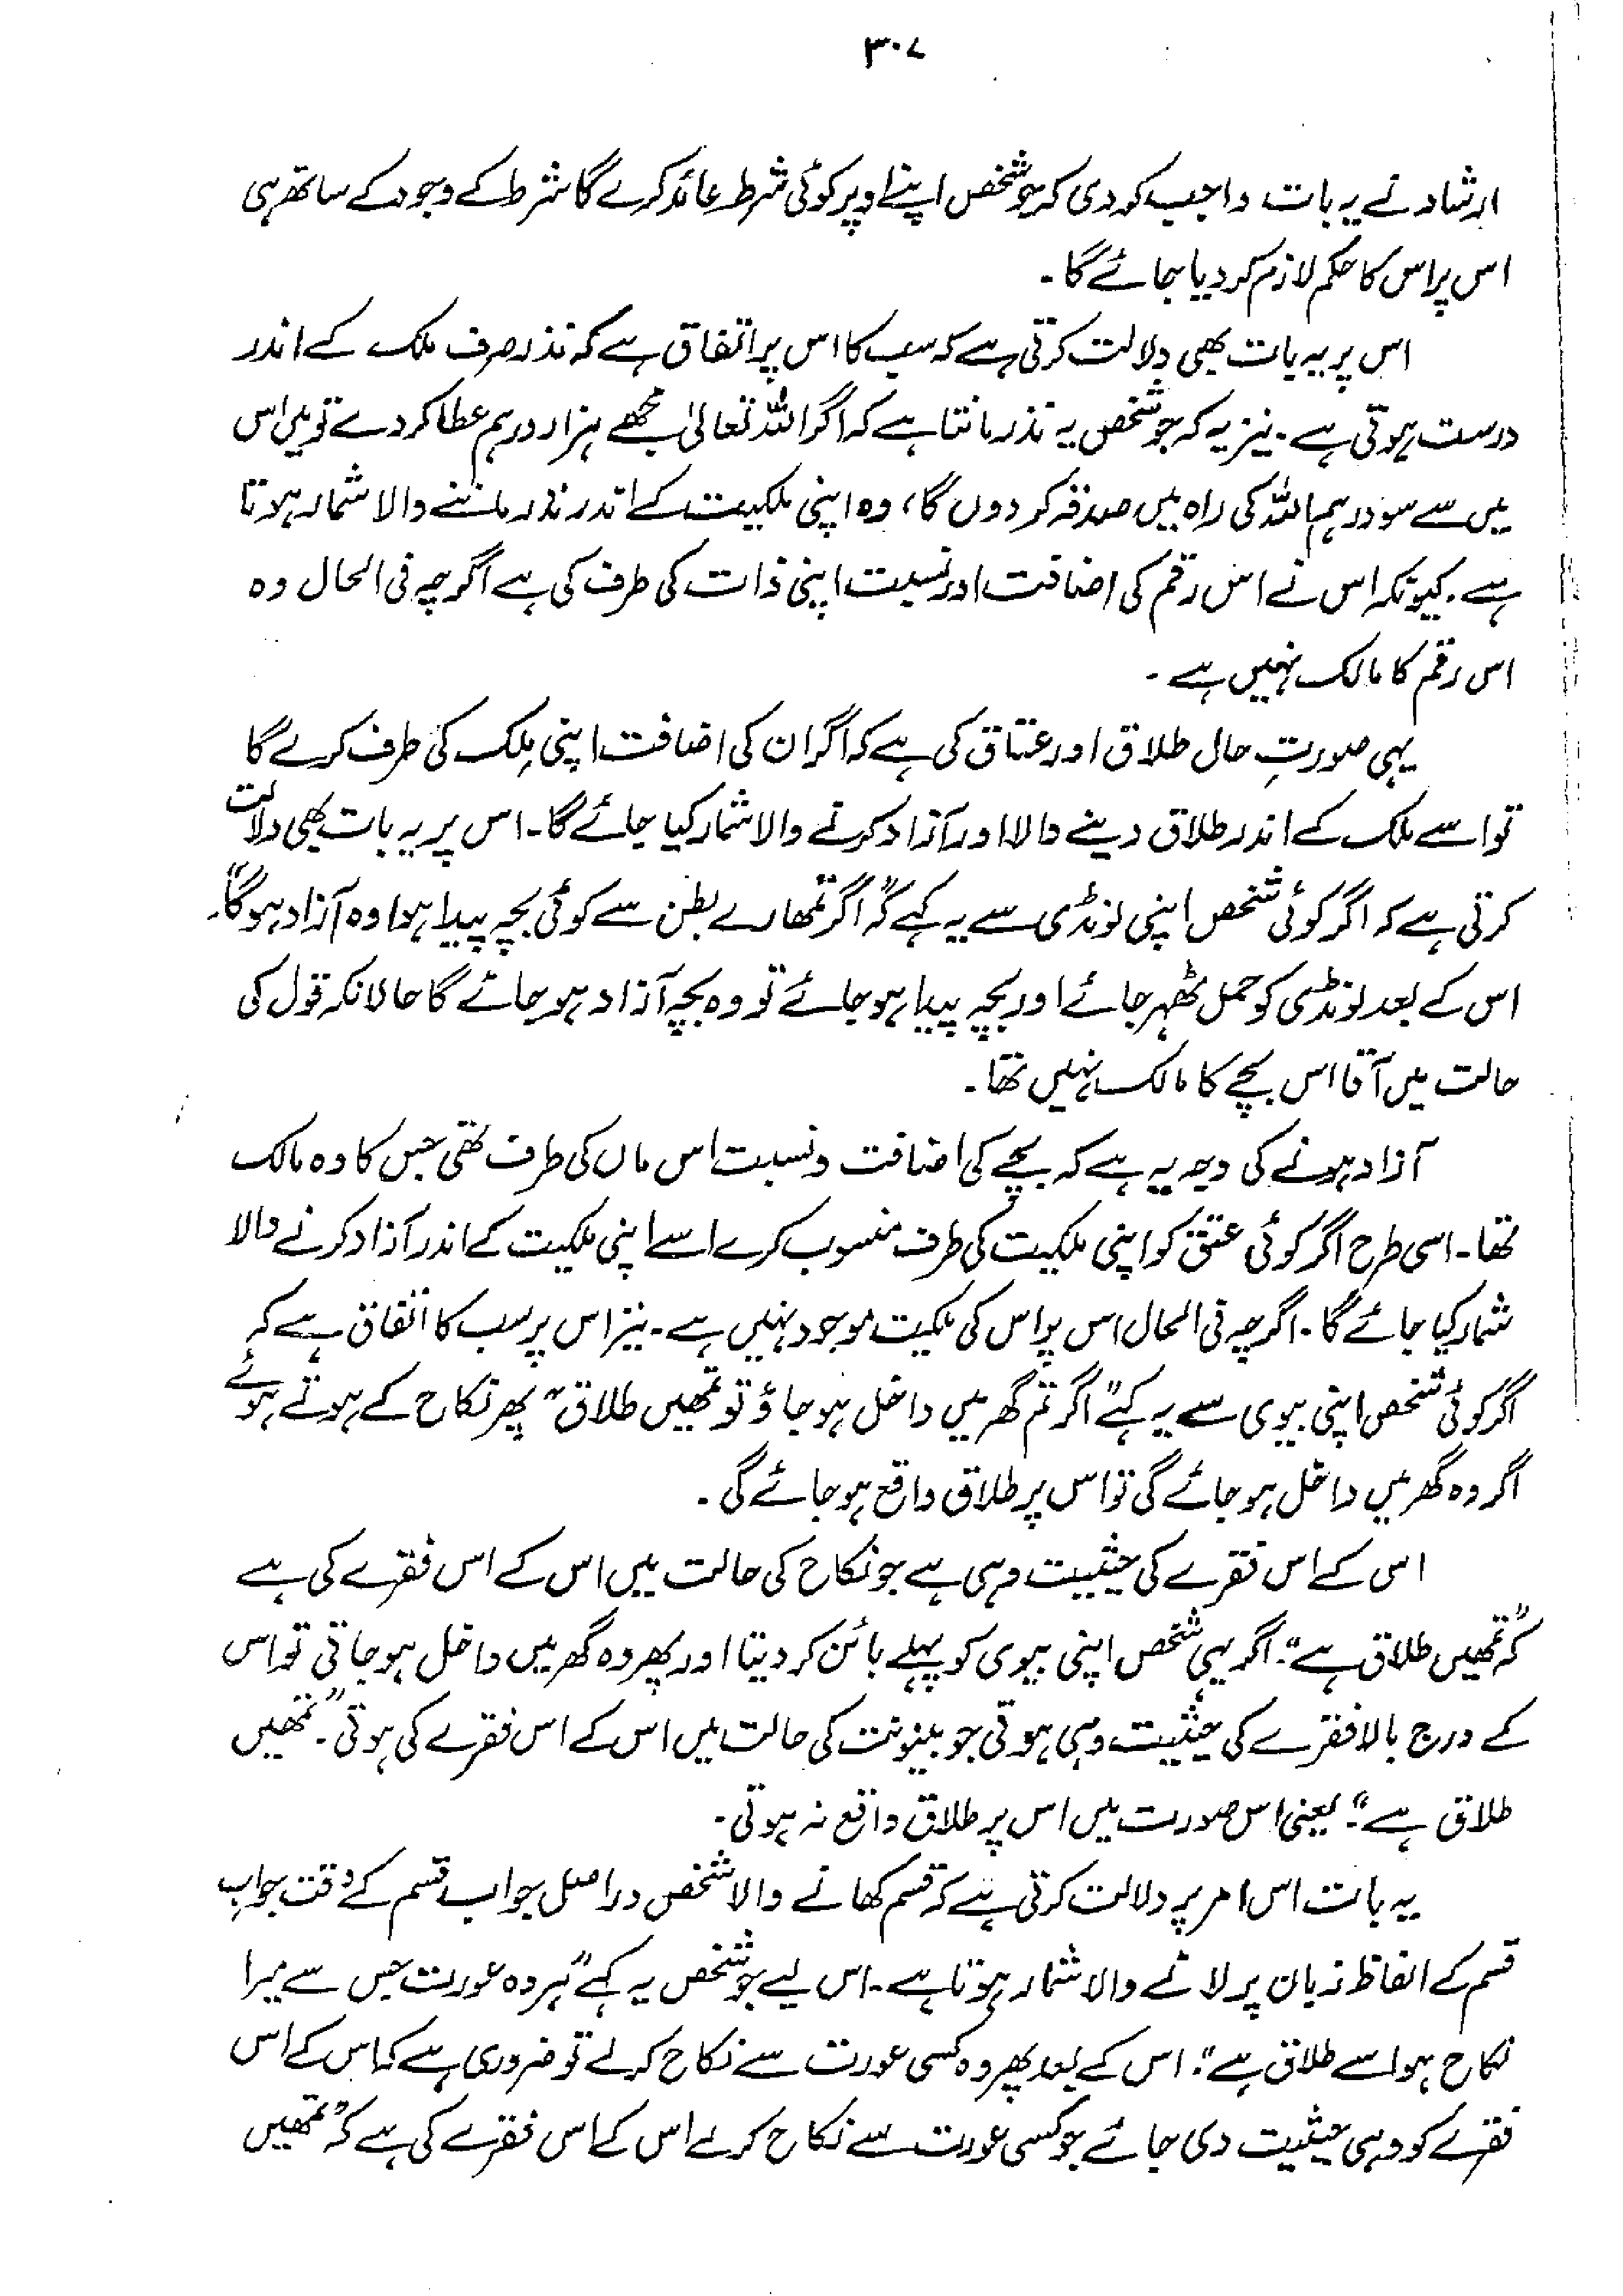 ۳۰۷
ارشاد نے یہ بات واجب کر دی کہ جو شخص اپنے اوپر کوئی شرط عائد کرے گا شرط کے وجود کے ساتھ ہی
اس پر اس کا حکم لازم کر دیا جائے گا۔
اس پر یہ بات بھی دلالت کرتی ہے کہ سب کا اس پر اتفاق ہے کہ نذر صرف ملک کے اندر
درست ہوتی ہے۔ نیز یہ کہ جو شخص یہ نذر مانتا ہے کہ اگر اللہ تعالیٰ مجھے ہزار درہم عطا کر دے تو میں اس
میں سے سو درہم اللہ کی راہ میں صدقہ کر دوں گا، وہ اپنی ملکیت کے اندر نذر ماننے والا شمار ہوتا
ہے۔ کیونکہ اس نے اس رقم کی اضافت اور نسبت اپنی ذات کی طرف کی ہے اگرچہ فی الحال وہ
اس رقم کا مالک نہیں ہے۔
یہی صورتِ حال طلاق اور عتاق کی ہے کہ اگر ان کی اضافت اپنی مِلک کی طرف کرے گا
تو اسے ملک کے اندر طلاق دینے والا اور آزاد کرنے والا شمار کیا جائے گا۔ اس پر یہ بات بھی دلالت
کرتی ہے کہ اگر کوئی شخص اپنی لونڈی سے یہ کہے کہ "اگر تمھارے بطن سے کوئی بچہ پیدا ہوا وہ آزاد ہوگا"۔
اس کے بعد لونڈی کو حمل ٹھہر جائے اور بچہ پیدا ہو جائے تو وہ بچہ آزاد ہو جائے گا حالانکہ قول کی
حالت میں آقا اس بچے کا مالک نہیں تھا۔
آزاد ہونے کی وجہ یہ ہے کہ بچے کی اضافت و نسبت اس ماں کی طرف تھی جس کا وہ مالک
تھا۔ اسی طرح اگر کوئی عتق کو اپنی ملکیت کی طرف منسوب کرے اسے اپنی ملکیت کے اندر آزاد کرنے والا
شمار کیا جائے گا۔ اگرچہ فی الحال اس پر اس کی ملکیت موجود نہیں ہے۔ نیز اس پر سب کا اتفاق ہے کہ
اگر کوئی شخص اپنی بیوی سے یہ کہے "اگر تم گھر میں داخل ہو جاؤ تو تمھیں طلاق" پھر نکاح کے ہوتے ہوئے
اگر وہ گھر میں داخل ہو جائے گی تو اس پر طلاق واقع ہو جائے گی۔
اس کے اس فقرے کی حیثیت وہی ہے جو نکاح کی حالت میں اس کے اس فقرے کی ہے
کہ "تمھیں طلاق ہے"۔ اگر یہی شخص اپنی بیوی کو پہلے بائن کر دیتا اور پھر وہ گھر میں داخل ہو جاتی تو اس
کے درج بالا فقرے کی حیثیت وہی ہوتی جو بینونت کی حالت میں اس کے اس فقرے کی ہوتی۔ "تمھیں
طلاق ہے"۔ یعنی اس صورت میں اس پر طلاق واقع نہ ہوتی۔
یہ بات اس امر پر دلالت کرتی ہے کہ قسم کھانے والا شخص دراصل جواب قسم کے وقت جوابِ
قسم کے الفاظ زبان پر لانے والا شمار ہوتا ہے۔ اس لیے جو شخص یہ کہے "ہر وہ عورت جس سے میرا
نکاح ہوا سے طلاق ہے"۔ اس کے بعد پھر وہ کسی عورت سے نکاح کرلے تو ضروری ہے کہ اس کے اس
فقرے کو وہی حیثیت دی جائے جو کسی عورت سے نکاح کرلے اس کے اس فقرے کی ہے کہ "تمھیں